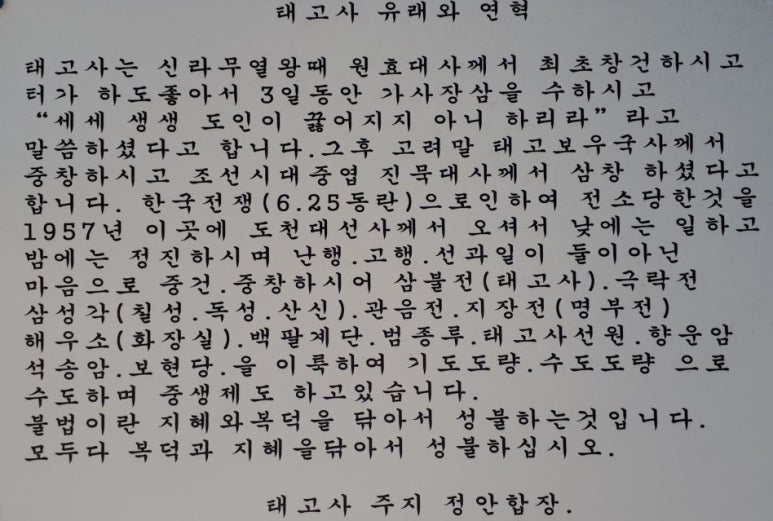 태고사 유래와 연혁
태고사는 신라무열왕때 원효대사께서 최초창건하시고
터가 하도좋아서 3일동안 가사장삼을 수하시고
“세세 생생 도인이 끓어지지 아니 하리라” 라고
말씀하셨다고 합니다.그후 고려말 태고보우국사께서
중창하시고 조선시대중엽 진묵대사께서 삼창 하셨다고
합니다. 한국전쟁(6.25동란)으로인하여 전소당한것을
1957년 이곳에 도천대선사께서 오셔서 낮에는 일하고
밤에는 정진하시며 난행.고행.선과일이 둘이아닌
마음으로 중건.중창하시어 삼불전(태고사).극락전
삼성각(칠성.독성.산신).관음전.지장전(명부전)
해우소(화장실).백팔계단.범종루.태고사선원.향운암
석송암.보현당.을 이룩하여 기도도량.수도도량 으로
수도하며 중생제도 하고있습니다.
불법이란 지혜와복덕을 닦아서 성불하는것입니다.
모두다 복덕과 지혜을닦아서 성불하십시오.
태고사 주지 정안합장.